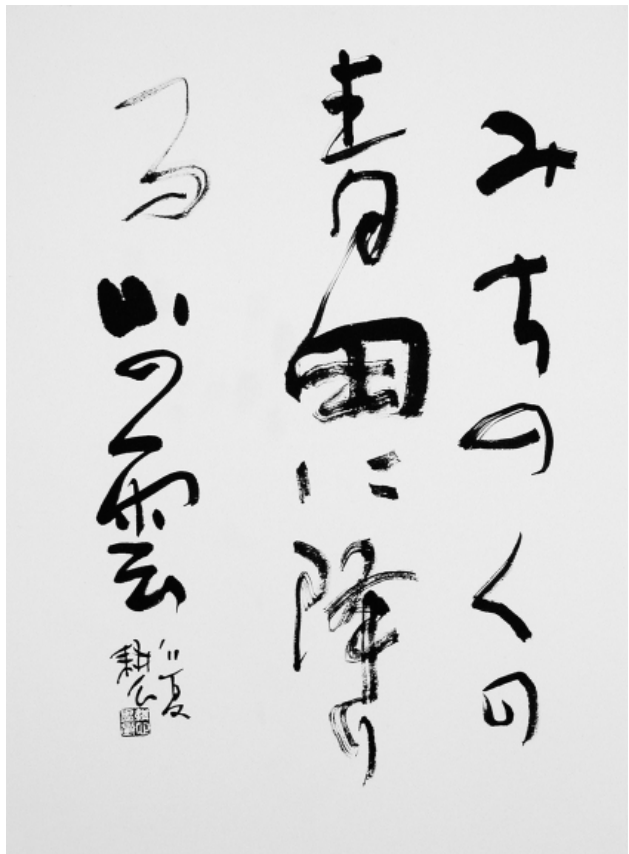 みちのくの
青田に降り
る山の雲
'11夏